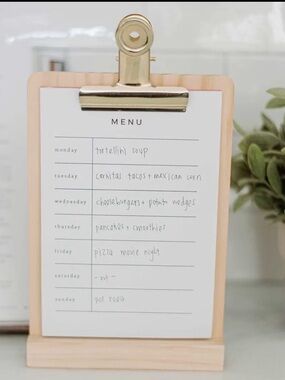 MENU
monday tortellini soup
tuesday carnitas tacos + mexican corn
wednesday cheeseburgers + potato wedges
thursday pancakes + smoothies
friday pizza movie night
saturday - out -
sunday pot roast